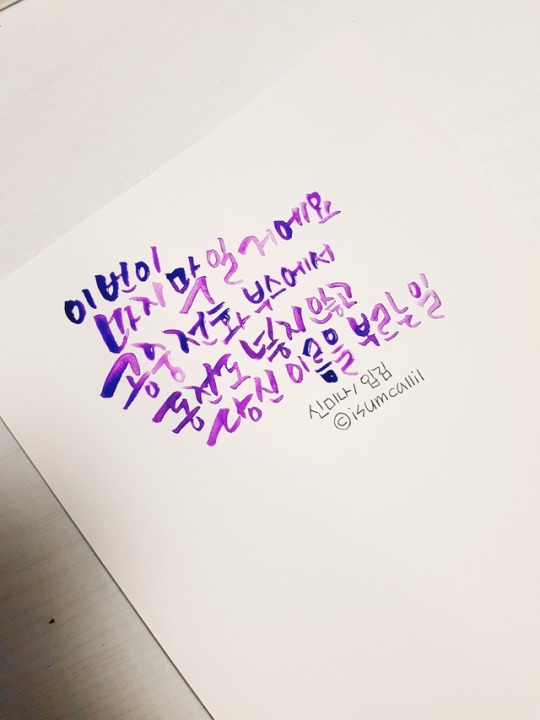 이번이
마지막일거에요
공중 전화 부스에서
동전도 넣지 않고
당신 이름을 부르는 일
신미나/입김
©isumcallil